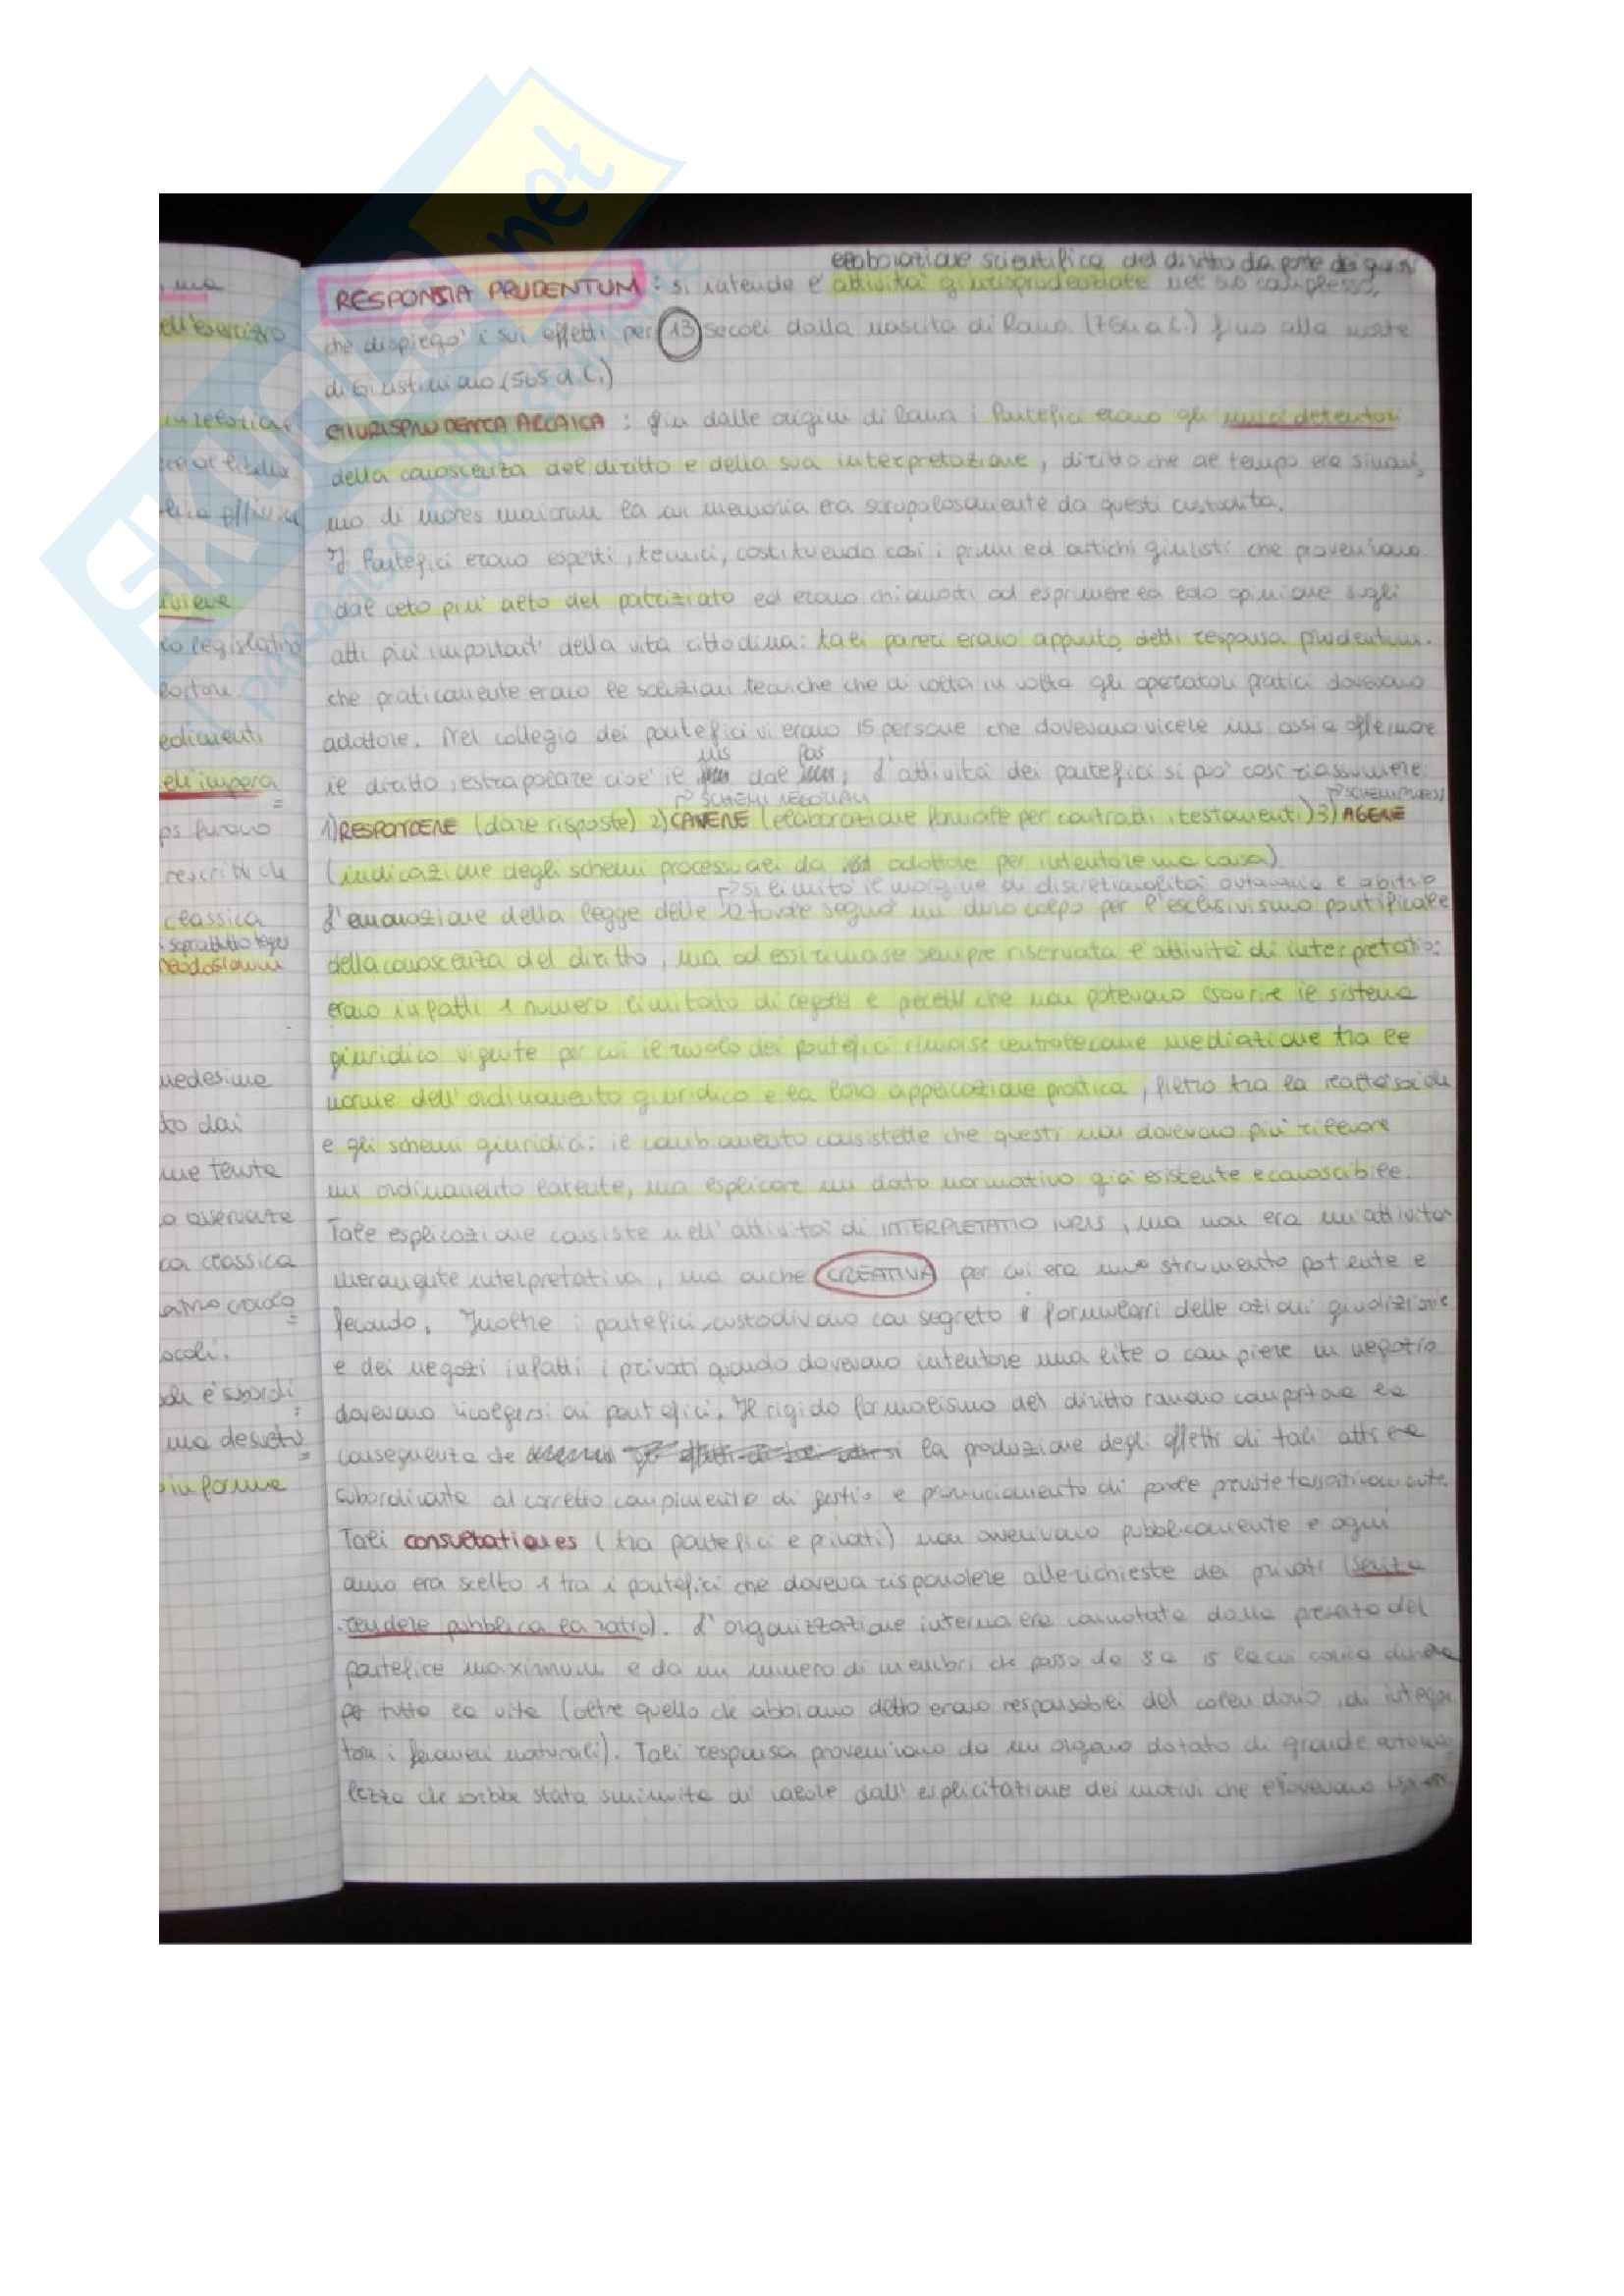 SKUOLA.net
il paradiso dello studente
, ma
ell'esercizio
interforian
blica officia
riveve
to legislativo
edicimenti
ell'impera
ps furono
rescritti che
classica
soprattutto leges
medesimo
to dai
me tenute
o osservate
ca classica
ocoli.
ma desueto
in forma
elaborazione scientifica del diritto da parte dei giuristi
RESPONSIA PRUDENTUM : si intende l'attività giurisprudenziale nel suo complesso,
che dispiegò i suoi effetti per 13 secoli dalla nascita di Roma (754 a.C.) fino alla morte
di Giustiniano (565 d.C.)
GIURISPRUDENZA ARCAICA : fin dalle origini di Roma i Pontefici erano gli unici detentori
della conoscenza del diritto e della sua interpretazione, diritto che al tempo era sinoni,
mo di mores maiorum la cui memoria era scrupolosamente da questi custodita.
I Pontefici erano esperti, tecnici, costituendo così i primi ed antichi giuristi che provenivano
dal ceto più alto del patriziato ed erano chiamati ad esprimere la loro opinione sugli
atti più importanti della vita cittadina: tali pareri erano appunto detti responsa prudentium.
che praticamente erano le soluzioni tecniche che di volta in volta gli operatori pratici dovevano
adottare. Nel collegio dei pontefici vi erano 15 persone che dovevano dicere ius ossia affermare
ius fas
il diritto, estrapolare cioè il dal ; L'attività dei pontefici si può così riassumere:
→ SCHEMI NEGOZIALI → SCHEMI PROCESS
1) RESPONDERE (dare risposte) 2) CAVERE (elaborazione formule per contratti, testamenti) 3) AGERE
(indicazione degli schemi processuali da adottare per intentare una causa)
→ si limitò il margine di discrezionalità autonomia e arbitrio
L'emanazione della legge delle 12 tavole segnò un duro colpo per l'esclusivismo pontificale
della conoscenza del diritto, ma ad essi rimase sempre riservata l'attività di interpretatio:
erano infatti 1 numero limitato di regole e precetti che non potevano esaurire il sistema
giuridico vigente per cui il ruolo dei pontefici rimase centrale come mediazione tra le
norme dell'ordinamento giuridico e la loro applicazione pratica, filtro tra la realtà sociale
e gli schemi giuridici: il cambiamento consistette che questi non dovevano più rilevare
un ordinamento latente, ma esplicare un dato normativo già esistente e conoscibile.
Tale esplicazione consiste nell'attività di INTERPRETATIO IURIS, ma non era un'attività
meramente interpretativa, ma anche CREATIVA per cui era uno strumento potente e
fecondo. Inoltre i pontefici custodivano con segreto i formulari delle azioni giudiziarie
e dei negozi infatti i privati quando dovevano intentare una lite o compiere un negozio
dovevano rivolgersi ai pontefici. Il rigido formalismo del diritto romano comportava la
conseguenza che la produzione degli effetti di tali atti era
subordinata al corretto compimento di gesti e pronunciamento di parole previste tassativamente.
Tali consultationes (tra pontefici e privati) non avvenivano pubblicamente e ogni
anno era scelto 1 tra i pontefici che doveva rispondere alle richieste dei privati (senza
rendere pubblica la ratio). L'organizzazione interna era connotata dalla presenza del
pontefice maximum e da un numero di membri che passò da 5 a 15 la cui carica durava
per tutta la vita (oltre quello che abbiamo detto erano responsabili del calendario, di
i fenomeni naturali). Tali responsa provenivano da un organo dotato di grande autorevo
lezza che sarebbe stata sminuita di valore dall'esplicitazione dei motivi che